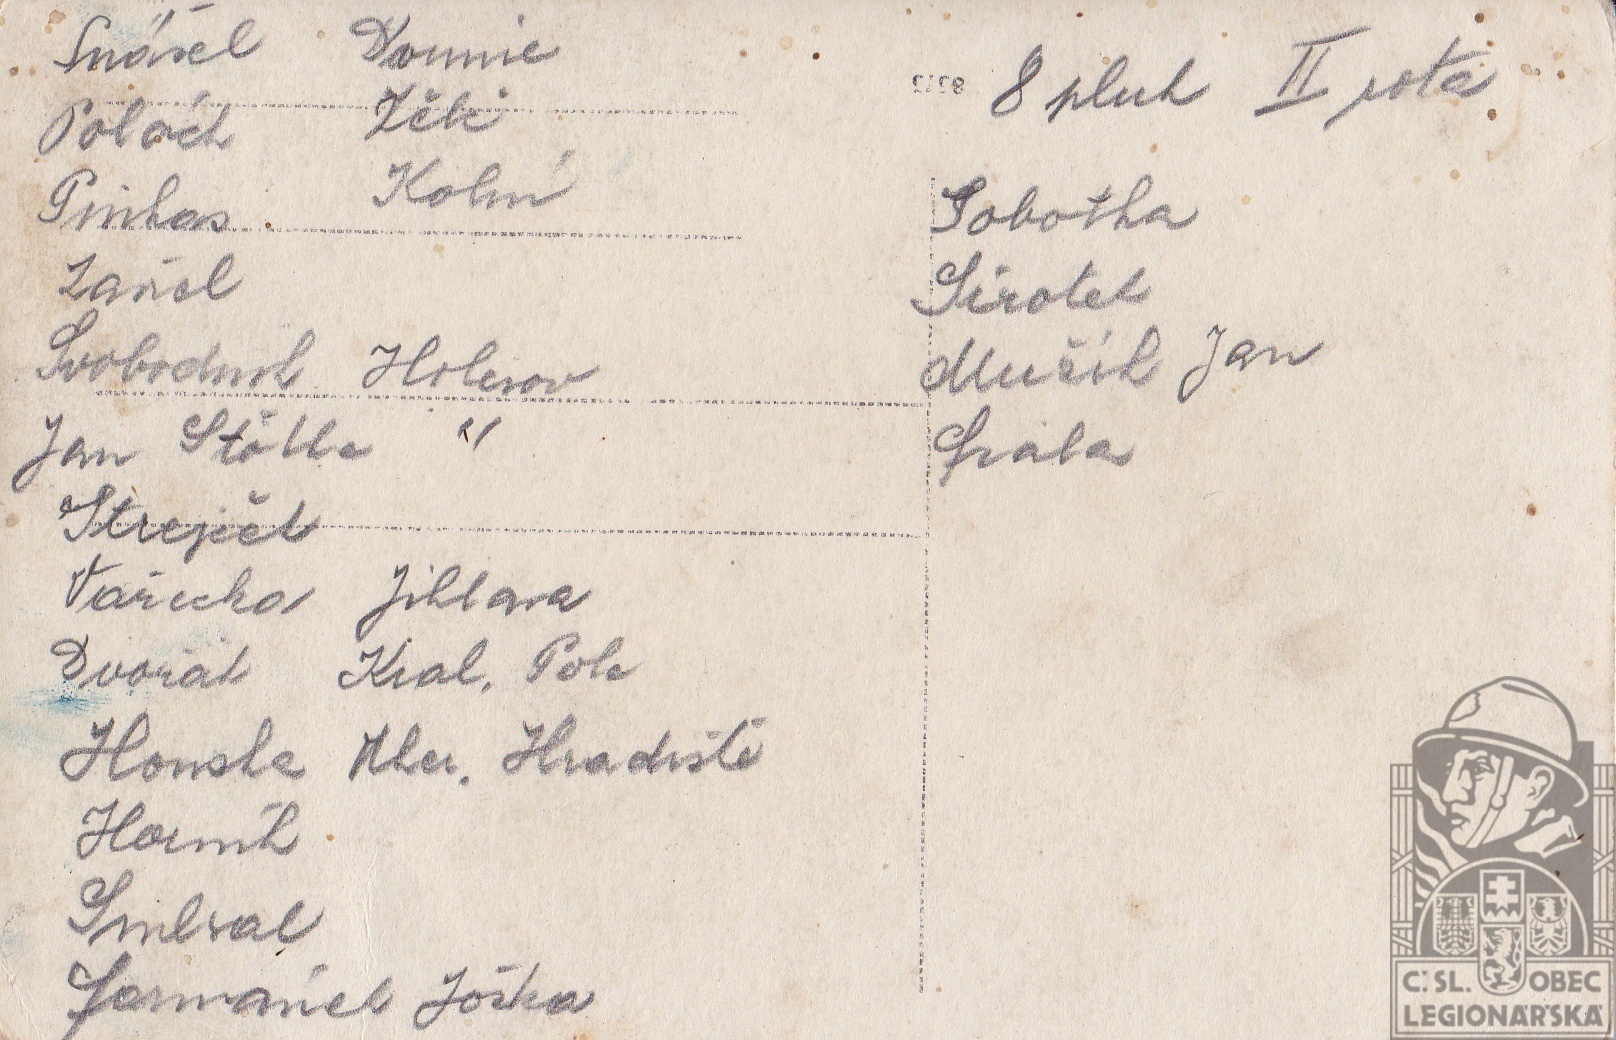 Snášel Dounie
Polách Zčie
Pinkas Kolín
Zaňel
Svobodník Holešov
Jan Stökle "
Strejček
Vařecka Jihlava
Dvořák Král. Pole
Konska Uher. Hradiště
Horník
Smekal
Formánek Jožka
8373
8 pluk II rota
Sobotka
Sirotek
Mužík Jan
Fiala
Č. SL. OBEC
LEGIONÁŘSKÁ